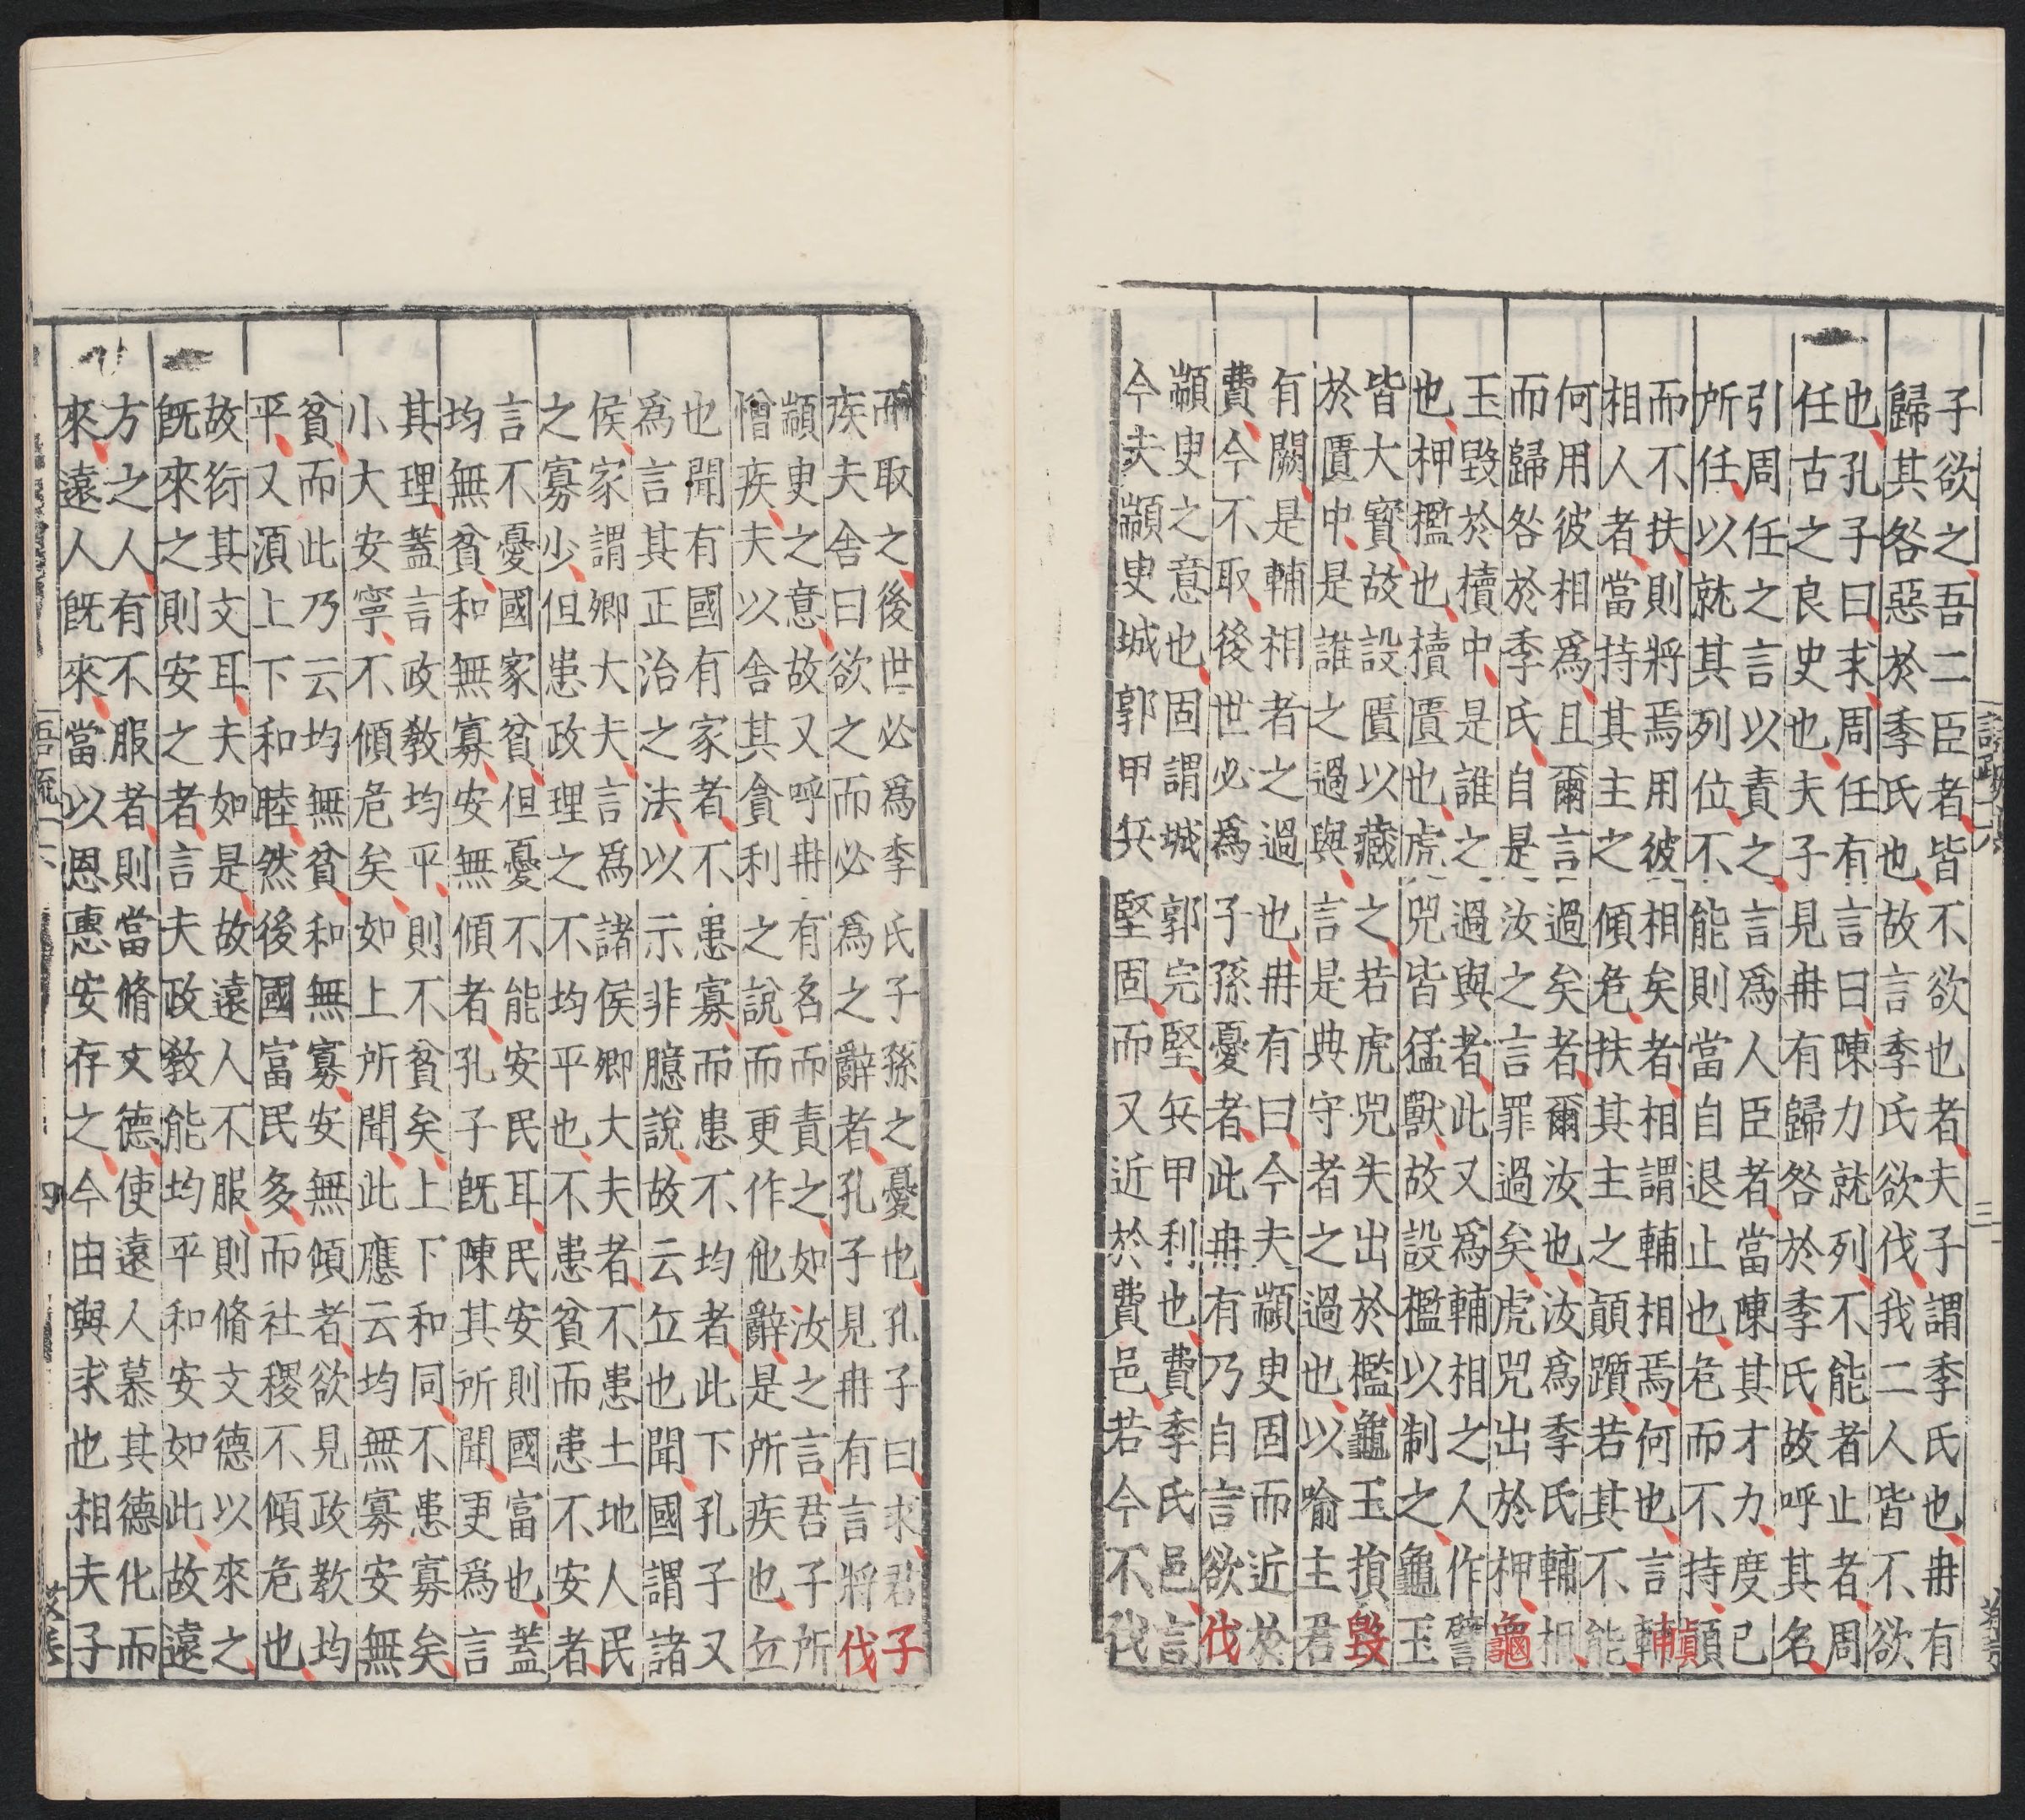 子欲之吾二臣者皆不欲也者夫子謂季氏也冉有
歸其咎惡於季氏也故言季氏欲伐我二人皆不欲
也孔子曰求周任有言曰陳力就列不能者止者周
任古之良史也夫子見冉有歸咎於季氏故呼其名
引周任之言以責之言爲人臣者當陳其才力度已
所任以就其列位不能則當自退止也危而不持顛
而不扶則將焉用彼相矣者相謂輔相焉何也言輔
相人者當持其主之傾危扶其主之顛躓若其不能
何用彼相爲且爾言過矣者爾汝也汝爲季氏輔相
而歸咎於季氏自是汝之言罪過矣虎兕出於柙龜
玉毀於櫝中是誰之過與者此又爲輔相之人作譬
也柙檻也櫝匱也虎兕皆猛獸故設檻以制之龜玉
皆大寶故設匱以藏之若虎兕失出於檻龜玉損毁
於匱中是誰之過與言是典守者之過也以喻主君
有闕是輔相者之過也冉有曰今夫顓臾固而近於
費今不取後世必爲子孫憂者此冉有乃自言欲伐
顓臾之意也固謂城郭完堅兵甲利也費季氏邑言
今夫顓臾城郭甲兵堅固而又近於費邑若今不伐
而取之後世必爲季氏子孫之憂也孔子曰求君子
疾夫舍曰欲之而必爲之辭者孔子見冉有言將伐
顓臾之意故又呼冉有名而責之如汝之言君子所
憎疾夫以舍其貪利之說而更作他辭是所疾也丘
也聞有國有家者不患寡而患不均者此下孔子又
爲言其正治之法以示非臆說故云丘也聞國謂諸
侯家謂卿大夫言爲諸侯卿大夫者不患土地人民
之寡少但患政理之不均平也不患貧而患不安者
言不憂國家貧但憂不能安民耳民安則國富也蓋
均無貧和無寡安無傾者孔子旣陳其所聞更爲言
其理蓋言政敎均平則不貧矣上下和同不患寡矣
小大安寧不傾危矣如上所聞此應云均無寡安無
貧而此乃云均無貧和無寡安無傾者欲見政敎均
平又湏上下和睦然後國富民多而社稷不傾危也
故衍其文耳夫如是故遠人不服則脩文德以來之
旣來之則安之者言夫政敎能均平和安如此故遠
方之人有不服者則當脩文德使遠人慕其德化而
來遠人旣來當以恩惠安存之今由與求也相夫子